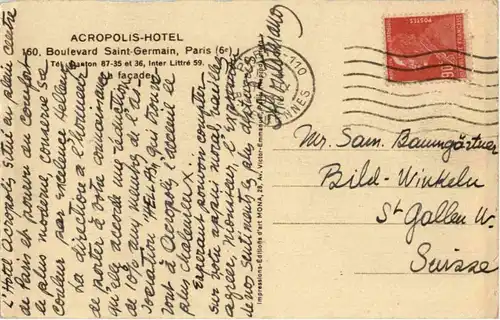 ACROPOLIS-HOTEL
160, Boulevard Saint-Germain, Paris (6e)
Tél.: Danton 87-35 et 36, Inter Littré 59.
La façade
L'Hôtel Acropolis situé en plein centre
de Paris et pourvu du confort
le plus moderne, conserve sa
couleur par excellence hellène
La direction a l'honneur
de porter à votre connaissance
qu'elle accorde une réduction
de 10% aux membres de l'as-
sociation qui trouve-
ront à Acropolis l'accueil le
plus chaleureux.
Espérant pouvoir compter
sur votre appui moral, veuillez
agréer, Monsieur, l'expression
de nos sentiments les plus distingués
Impression-Editions d'art MONA, 28, Av. Victor-Emmanuel
110
RENNES
POSTES
90
Mr. Sam. Baumgärtner
Bild-Winkeln
St Gallen W.
Suisse